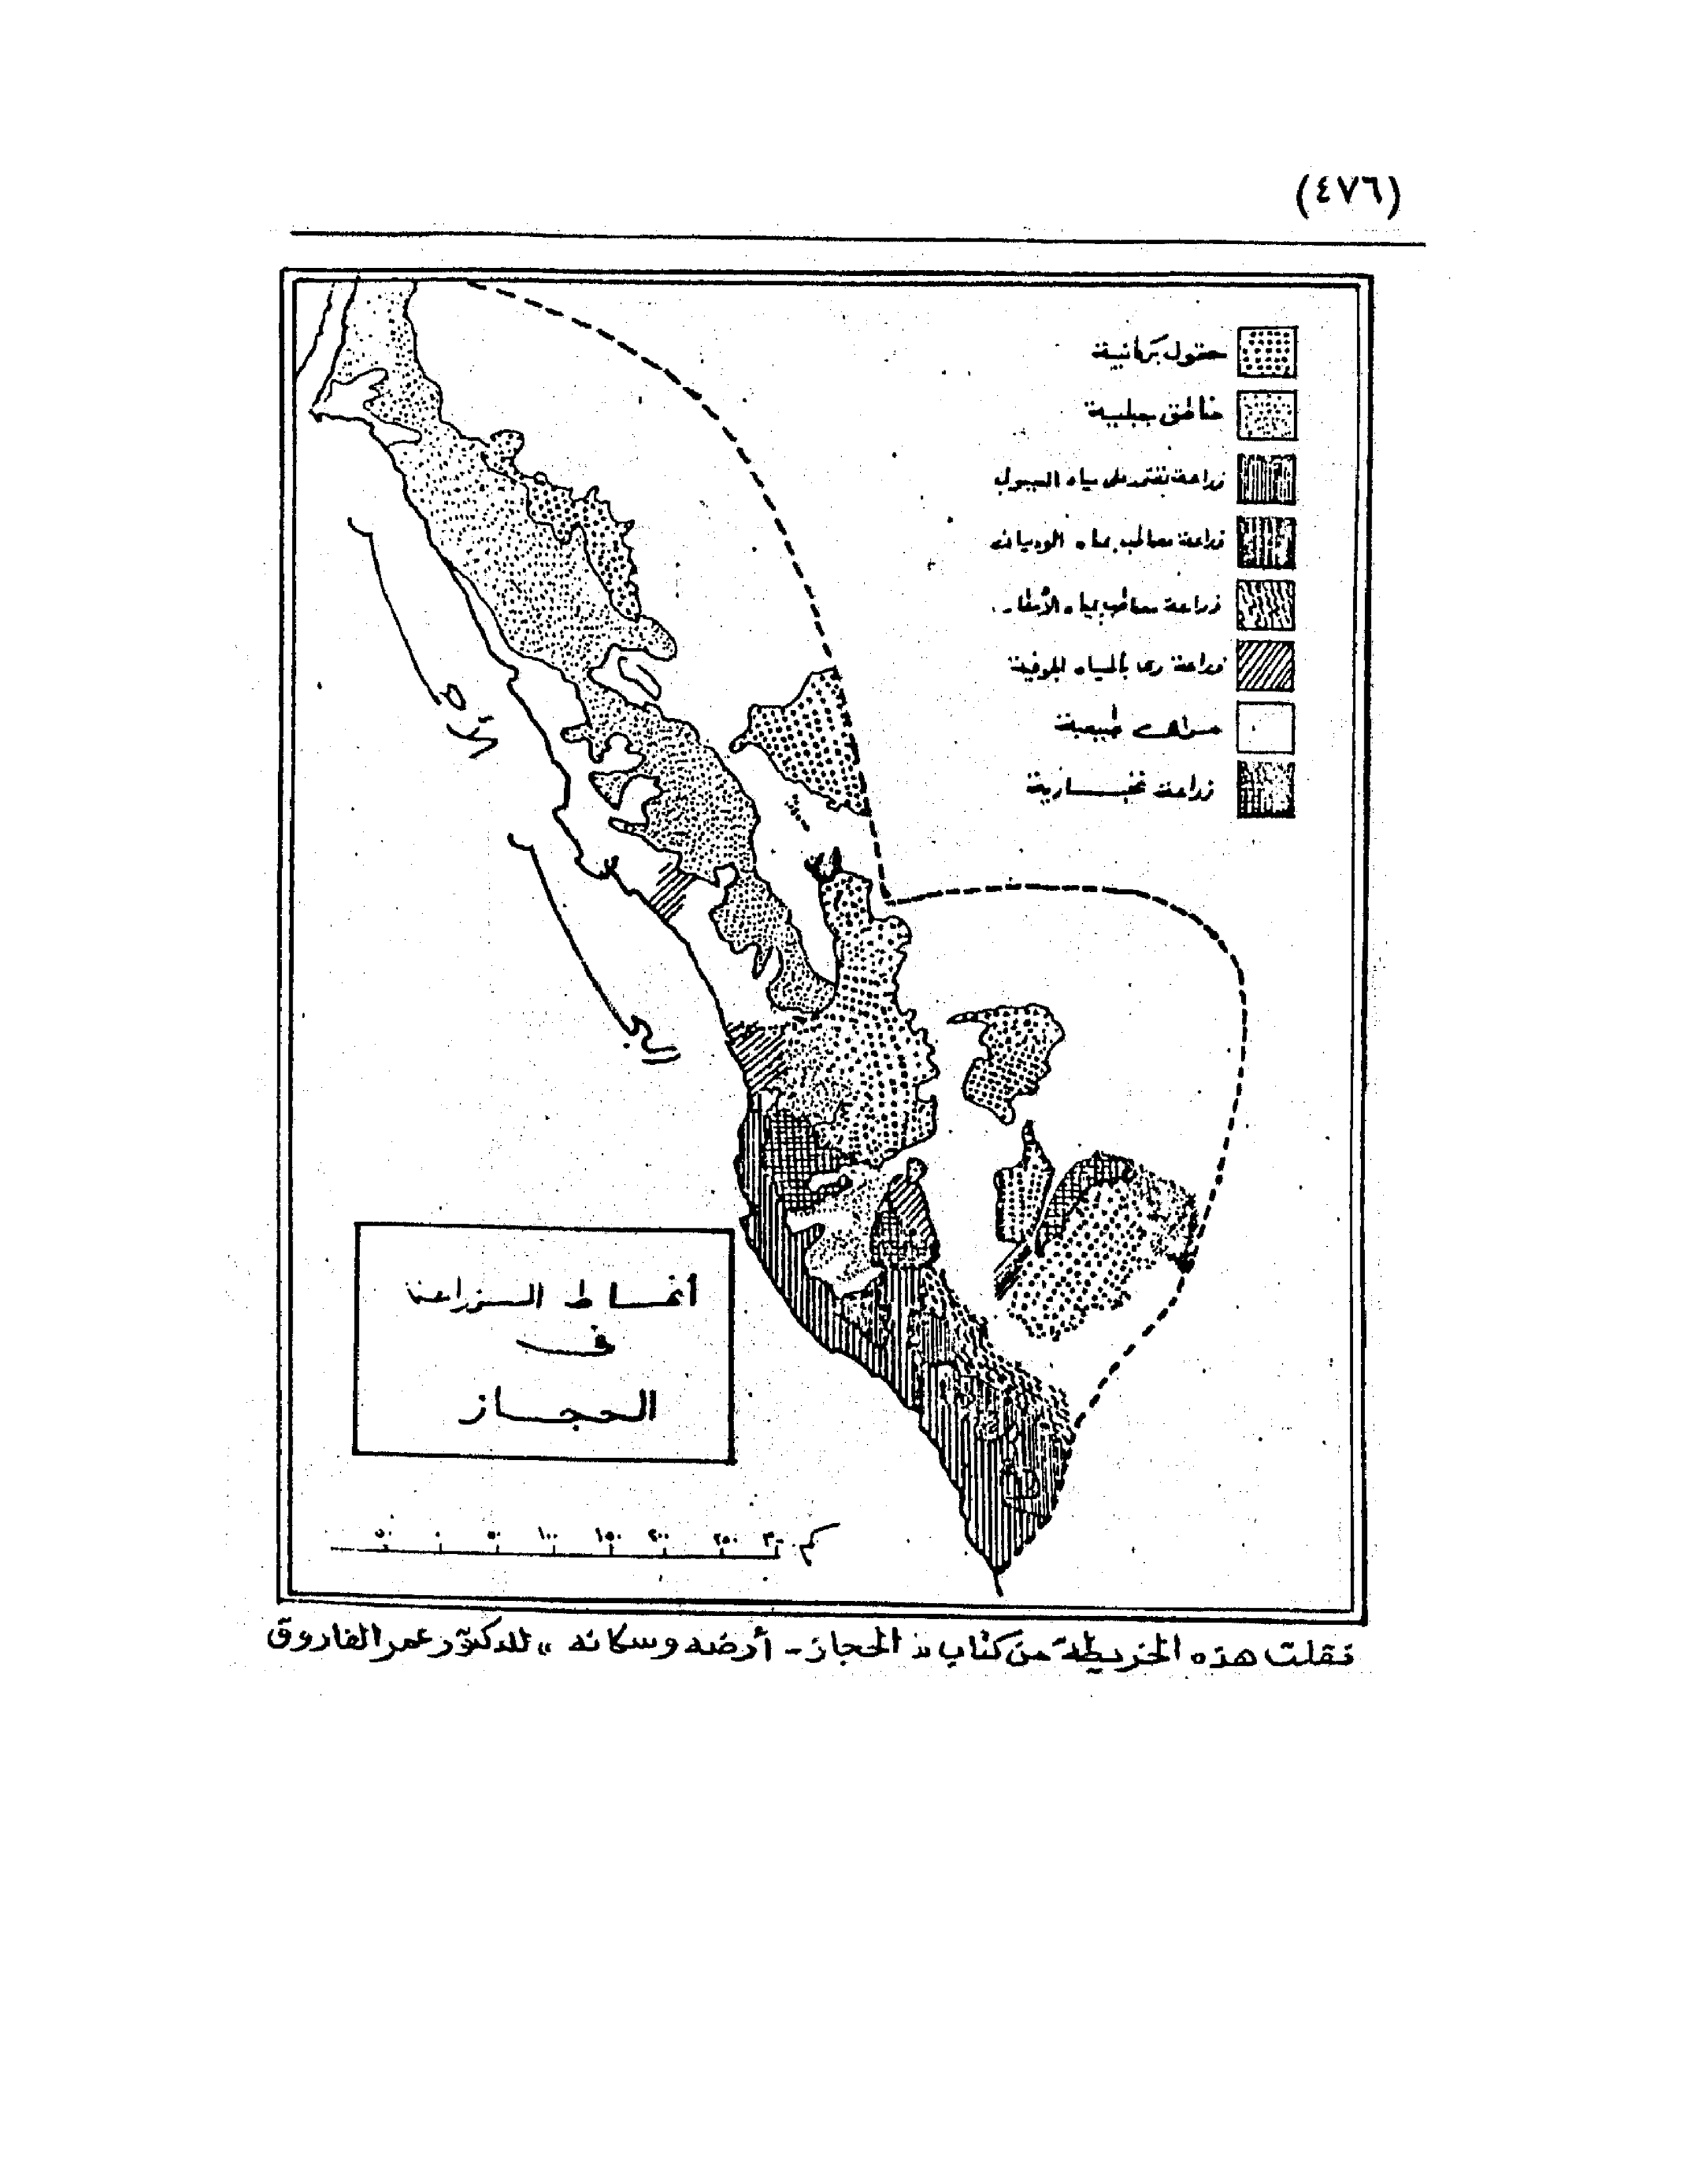 (٤٧٦)
حقول بركانية
مناطق جبلية
زراعة تعتمد على مياه السيول
زراعة مصاطب بمياه الوديان
زراعة مصاطب بمياه الأمطار
زراعة ري بالمياه الجوفية
مراعى طبيعية
زراعة تجارية
البحر
الأحمر
أنماط الزراعة
في
الحجاز
٥٠ ٠ ٥٠ ١٠٠ ١٥٠ ٢٠٠ ٢٥٠ ٣٠٠ كم
نقلت هذه الخريطة من كتاب « الحجاز - أرضه وسكانه » للدكتور عمر الفاروق